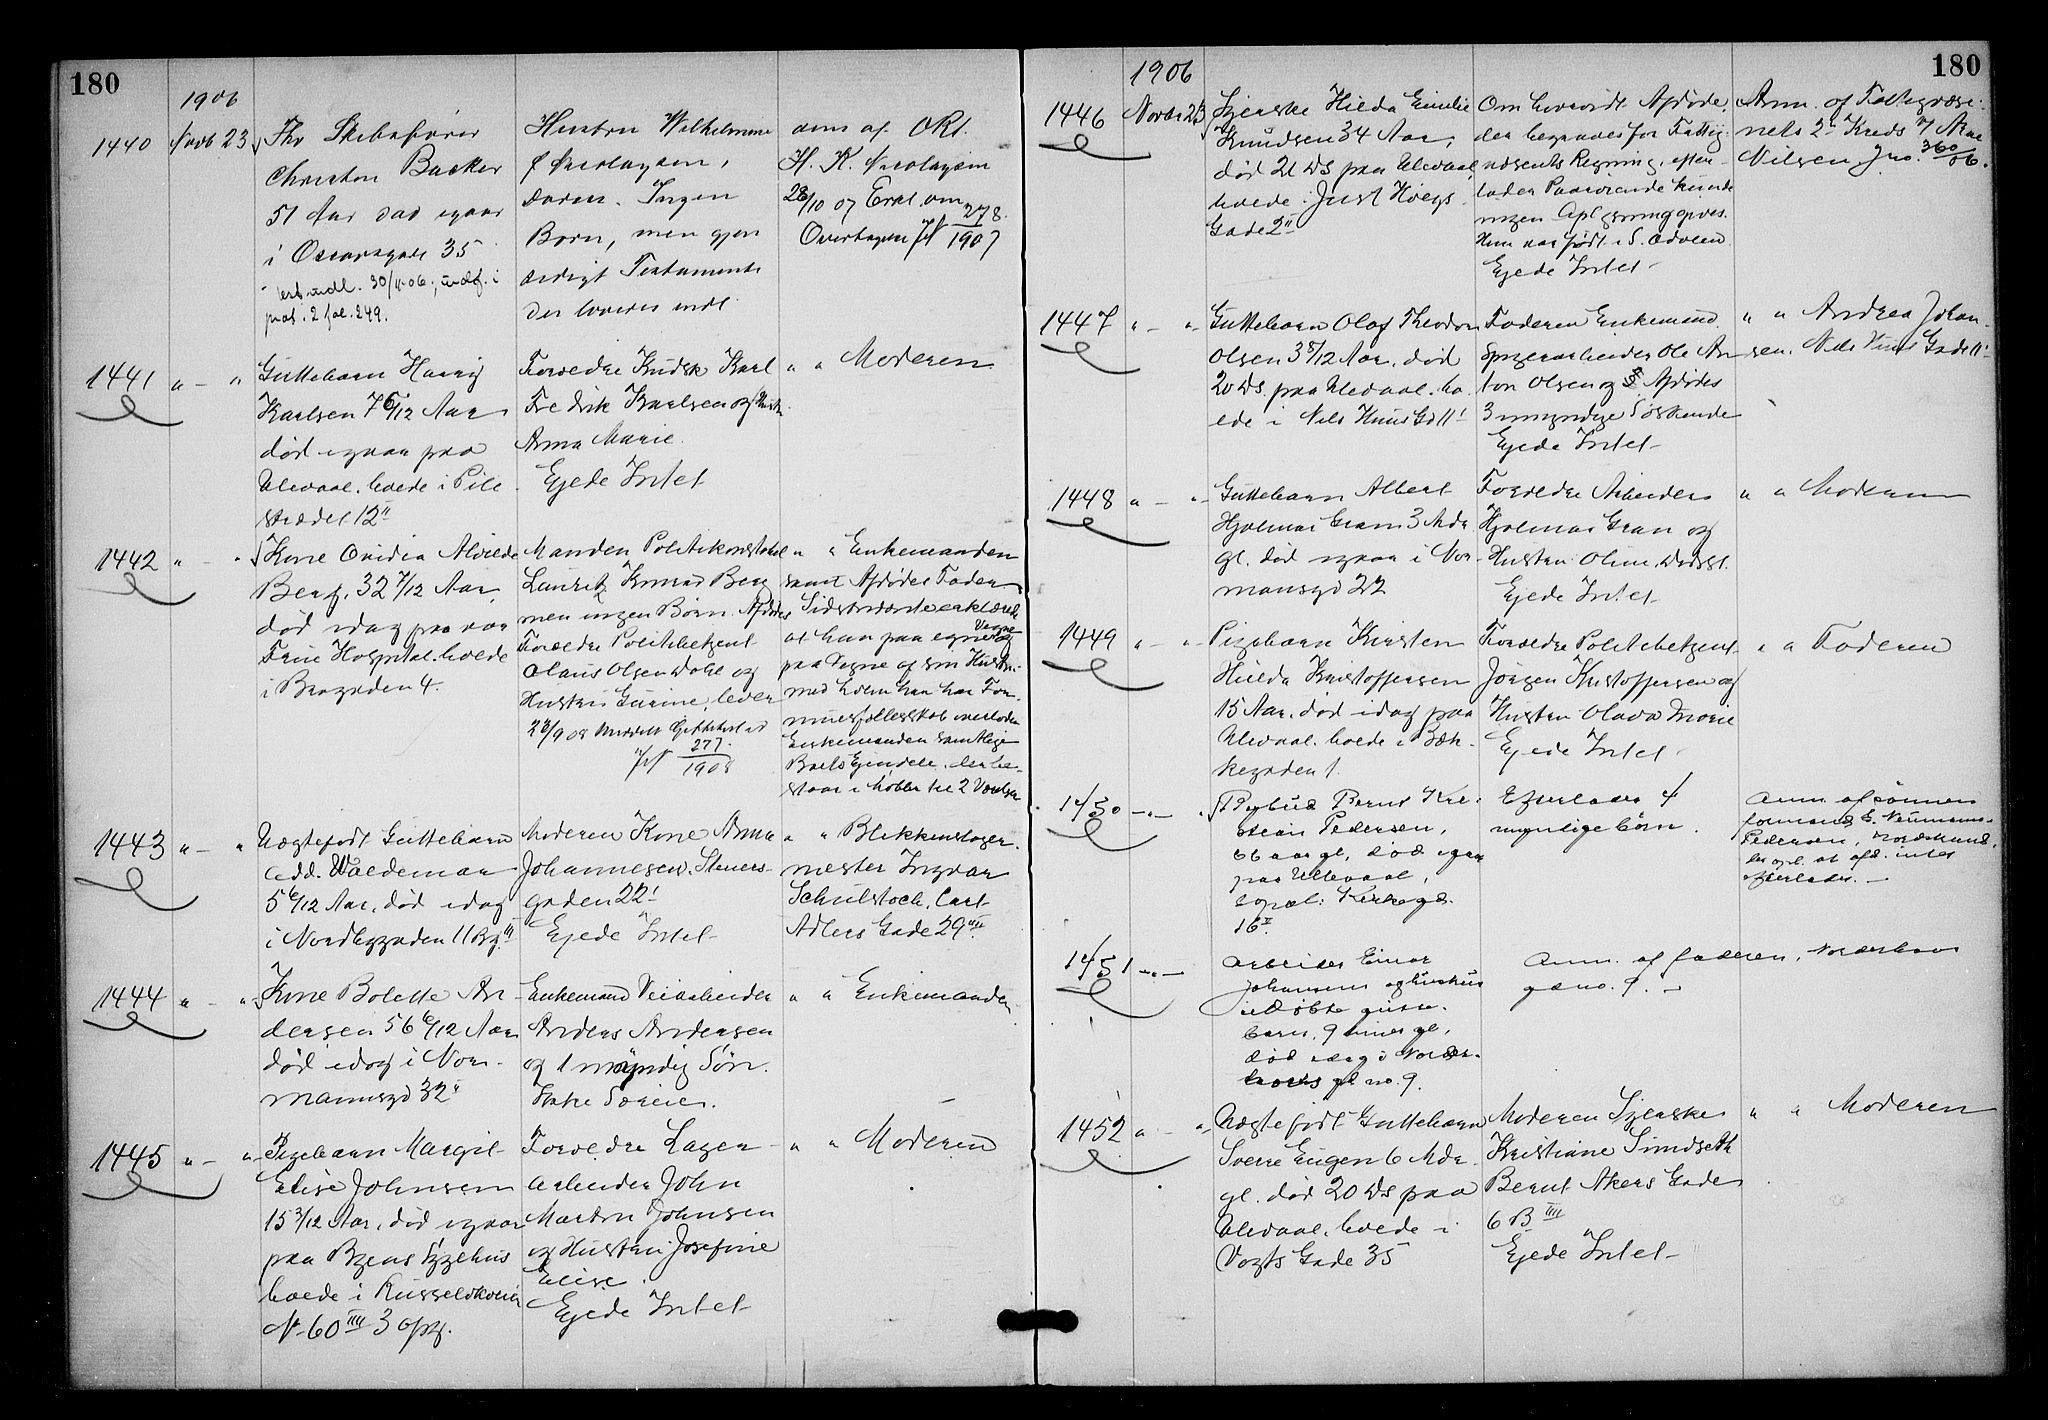 180
1906
1440
Novb 23
Fhv Skibsfører
Christen Backer
51 Aar død igaar
i Oscarsgade 35
indl. 30/11-06, indf. i
prot. 2 fol. 249.
Hustru Wilhelmine
f Nicolaysen,
Ingen
Børn, men gjen
sidigt Testamente
der loveres indl.
anm af ORt.
H. K. Nicolaysen
28/10 07 Erkl. om
Overtagen Jnl 278/1907
1441 " — "
Guttebarn Harry
Karlsen 7 6/12 Aar
død igaar paa
Ulevaal. boede i Pile
strædet 12II
Forældre Kudsk Karl
Fredrik Karlsen og Hustru
Anna Marie.
Ejede Intet
" " Moderen
1442 " "
Kone Ovidia Alvilde
Berg. 32 7/12 Aar,
død idag paa vor
Frue Hospital. boede
i Brogaden 4.
Manden Politikonstabel
Lauritz Konrad Berg
men ingen Børn. Afdødes
Forældre Politibetjent
Claus Olsen Dahl og
Hustru Gurine, lever
23/9 08 Meddelt Giftetilst
Jnl 277/1908
" " Enkemanden
samt Afdødes Fader
Sidstnævnte erklærede
at han paa egne Vegne og
paa Vegne af sin Hustru
med hvem han har For-
muesfællesskab overlader
Enkemanden samtlige
Boets Ejendele, der be-
staar i Møbler til 2 Værelser
1443 " — "
Uægtefødt Guttebarn
Odd. Waldemar
5 6/12 Aar, død idag
i Nordbygaden 11 Bg. III
Moderen Kone Anna
Johannesen. Steners-
gaden 22I
Ejede Intet
" " Blikkenslager-
mester Ingvar
Schulstock, Carl
Adlers Gade 29III
1444 " — "
Kone Bolette An-
dersen 56 6/12 Aar
død idag i Nor-
mannsgd 32II
Enkemand Veiarbeider
Anders Andersen
og 1 myndig Søn.
" " Enkemanden
1445 " — "
Pigebarn Margit
Elise Johnsen
15 3/12 Aar, død igaar
paa Byens Sygehus
boede i Russeløkveien
No 60 IIII 3 opg.
Forældre Lager-
arbeider John
Martin Johnsen
og Hustru Josefine
Elise.
Ejede Intet
" " Moderen
180
1906
1446
Novbr 23
Syerske Hilda Emilie
Knudsen 34 Aar,
død 21 Ds paa Ulevaal,
boede i Just Høegs
Gade 2II
Om hvorvidt Afdøde,
der begraves for Fattig-
væsenets Regning, efter-
lader Paarørende kunde
ingen Oplysning gives.
Hun var født i S. Odalen
Ejede Intet
Anm. af Fattigvæse-
nets 2 Kreds v/ Arne
Nilsen Jno. 360/06.
1447 " — "
Guttebarn Olaf Theodor
Olsen 3 8/12 Aar. død
20 Ds. paa Ulevaal. bo
ede i Nils Huus Gd 11I
Faderen Enkemand
Ole An
ton Olsen og Afdødes
3 umyndige Søskende
Ejede Intet
" " Andrea Johan-
sen. Nils Huus Gade 11I
1448 " — "
Guttebarn Albert
Hjalmar Gran 3 Mdr
gl. død igaar i Nor-
mansgd 22
Forældre Arbeider
Hjalmar Gran og
Hustru Oline
Ejede Intet
" " Moderen
1449 " — "
Pigebarn Kirsten
Hilda Kristoffersen
15 Aar, død idag paa
Ulevaal. boede i Bæk-
kegaden 1.
Forældre Politibetjent
Jørgen Kristoffersen og
Hustru Olava Marie
Ejede Intet
" " Faderen
1450 —"—
Bernt Kri-
stian Pedersen,
66 aar gl, død igaar
paa Ullevaal,
Kirkegd.
16II.
Efterlader 4
myndige børn.
Anm. af sønnen
formand E. Neumann-
Pedersen,
der opl. at afd. intet
efterlader. —
1451 —"—
Arbeider Einar
Johansens og hustrus
udøbte gutte-
barn, 9 timer gl,
død idag i Norder-
hovs gd no. 9.
Anm. af faderen, Norderhovs
gd no. 9. —
1452 " — "
Uægtefødt Guttebarn
Sverre Eugen 6 Mdr.
gl. død 20 Ds paa
Ulevaal. boede i
Vogts Gade 35
Moderen Syerske
Kristiane Simdseth
Bernt Akers Gade
6 B IIII
Ejede Intet
" " Moderen